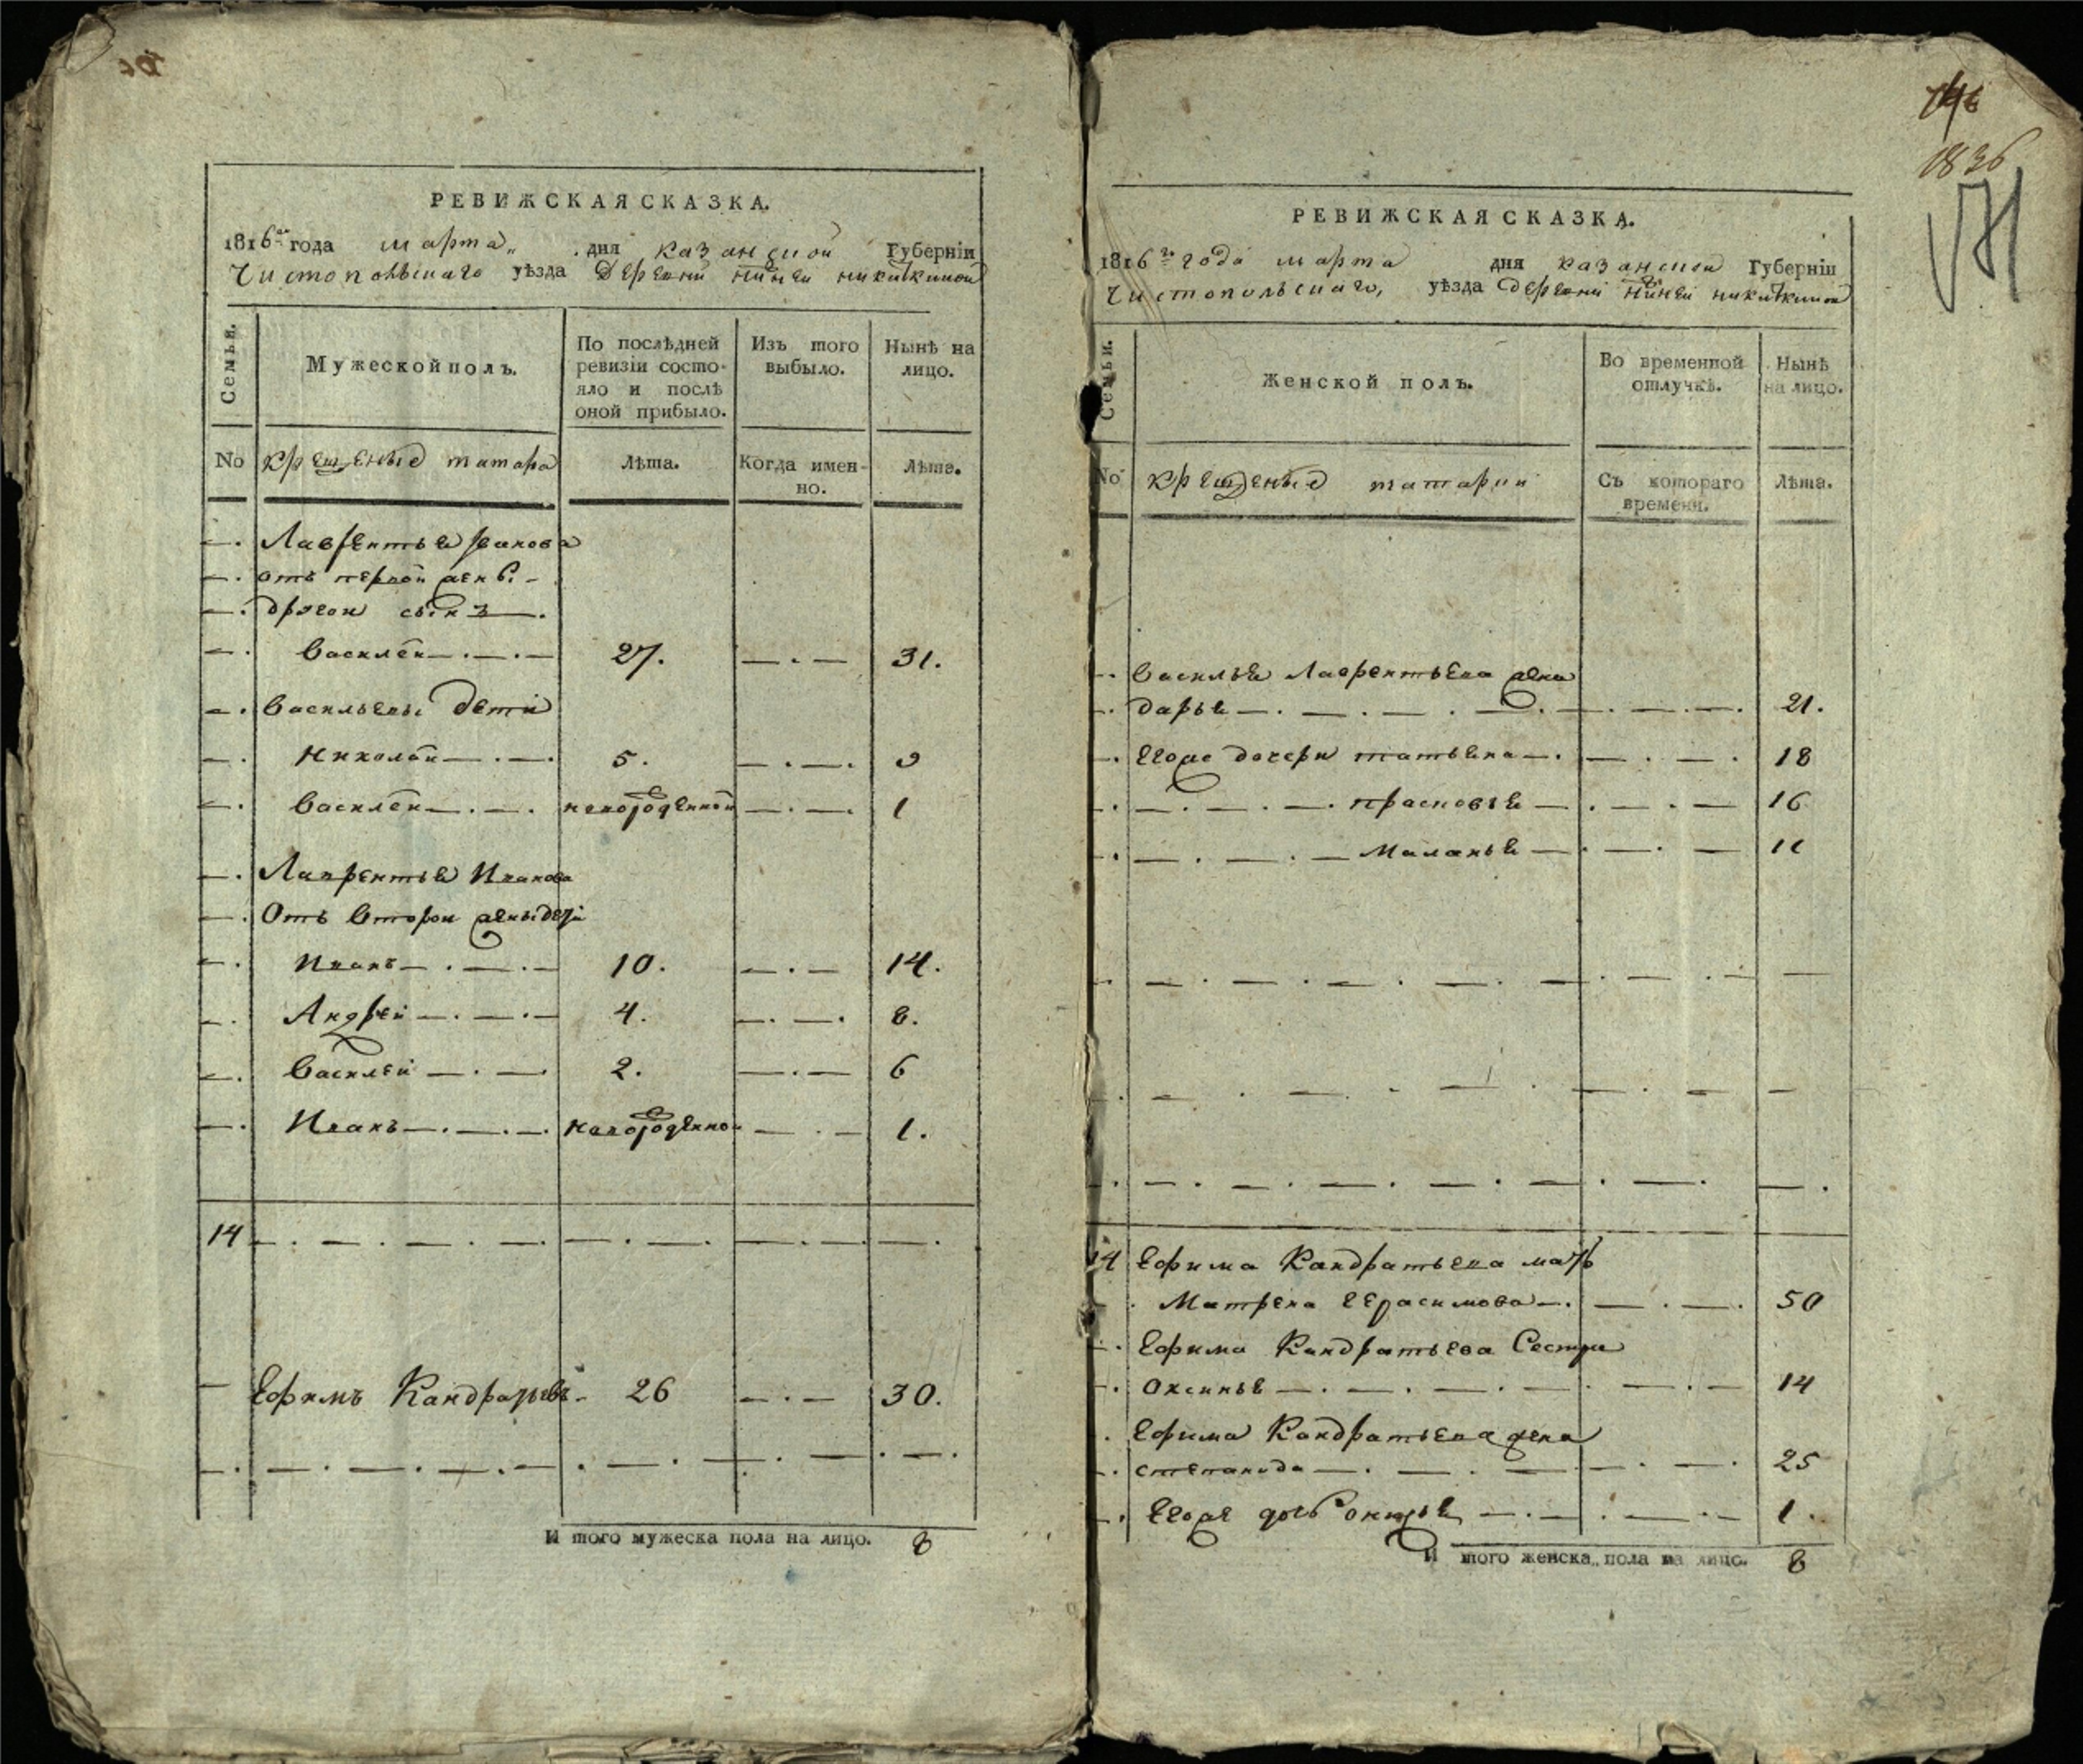 РЕВИЖСКАЯ СКАЗКА.
1816го года марта дня казанской Губерніи
Чистопольскаго уѣзда Деревни никиткиной
Семьи.
Мужеской полъ.
По послѣдней ревизіи состояло и послѣ оной прибыло.
Изъ того выбыло.
Нынѣ на лицо.
No крещеные татара
Лѣта.
Когда именно.
Лѣта.
Лаврентья Иванова
отъ первой жены
другой сынъ
Василей 27. 31.
Васильевы дети
Николай 5. 9
Василей новорожденной 1
Лаврентья Иванова
Отъ второй жены дети
Иванъ 10. 14.
Андрей 4. 8.
Василей 2. 6
Иванъ новорожденной 1.
14
Ефимъ Кандратьевъ 26 30.
И того мужеска пола на лицо. 8
1836
РЕВИЖСКАЯ СКАЗКА.
1816го года марта дня казанской Губерніи
Чистопольскаго, уѣзда деревни никиткиной
Семьи.
Женской полъ.
Во временной отлучкѣ.
Нынѣ на лицо.
No крещеные татарки
Съ котораго времени.
Лѣта.
Василья Лаврентьева жена
дарья 21.
Егоже дочери татьяна 18
прасковья 16
Маланья 11
14 Ефима Кандратьева мать
Матрена Герасимова 50
Ефима Кандратьева Сестра
Оксинья 14
Ефима Кандратьева жена
степанида 25
Егоже дочь 1.
И того женска пола на лицо. 8